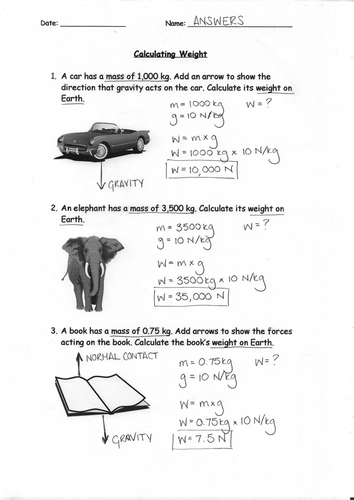 Date: Name: ANSWERS
Calculating Weight
1. A car has a mass of 1,000 kg. Add an arrow to show the
direction that gravity acts on the car. Calculate its weight on
Earth.
m = 1000 kg W = ?
g = 10 N/kg
W = m x g
W = 1000 kg x 10 N/kg
W = 10,000 N
GRAVITY
2. An elephant has a mass of 3,500 kg. Calculate its weight on
Earth.
m = 3500 kg W = ?
g = 10 N/kg
W = m x g
W = 3500 kg x 10 N/kg
W = 35,000 N
3. A book has a mass of 0.75 kg. Add arrows to show the forces
acting on the book. Calculate the book's weight on Earth.
NORMAL CONTACT
m = 0.75 kg W = ?
g = 10 N/kg
W = m x g
W = 0.75 kg x 10 N/kg
W = 7.5 N
GRAVITY